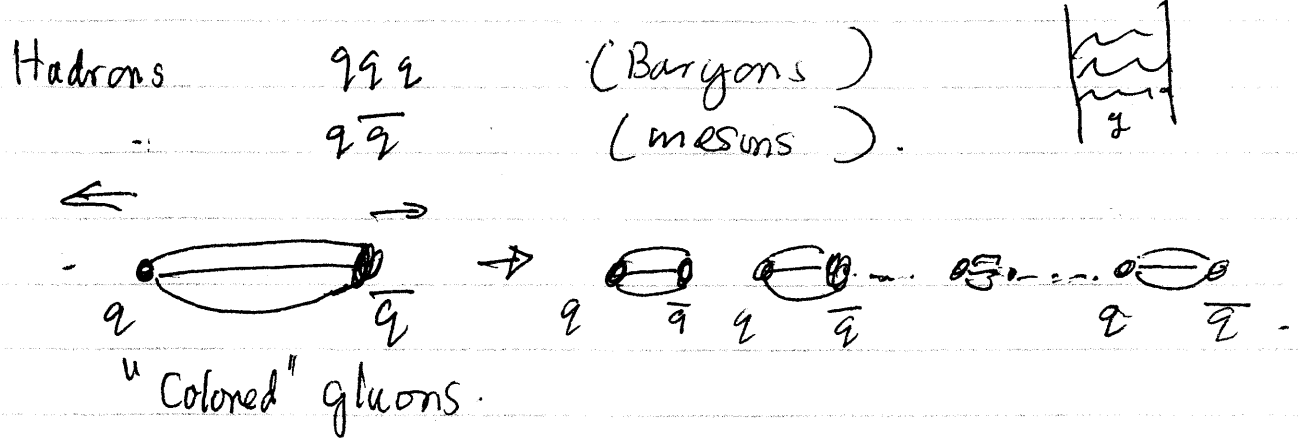 Hadrons qqq (Baryons)
" qq̅ (mesons).
g
→
q q̅ q q̅ q q̅ q q̅.
"Colored" gluons.